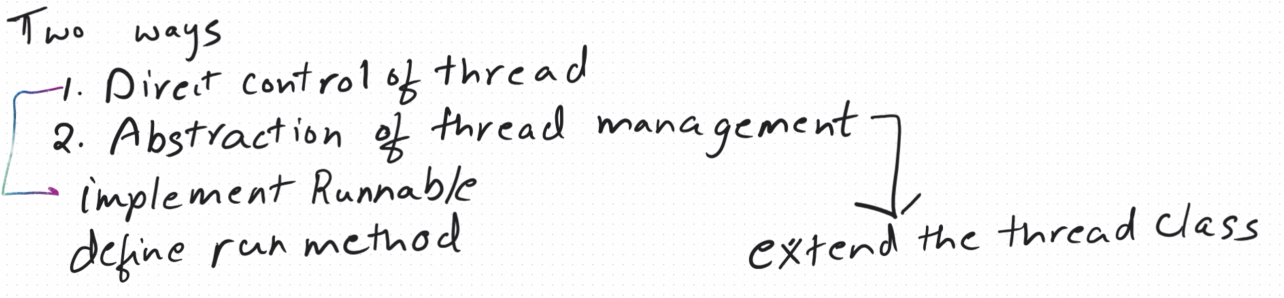 Two ways
1. Direct control of thread
2. Abstraction of thread management
implement Runnable
define run method
extend the thread class